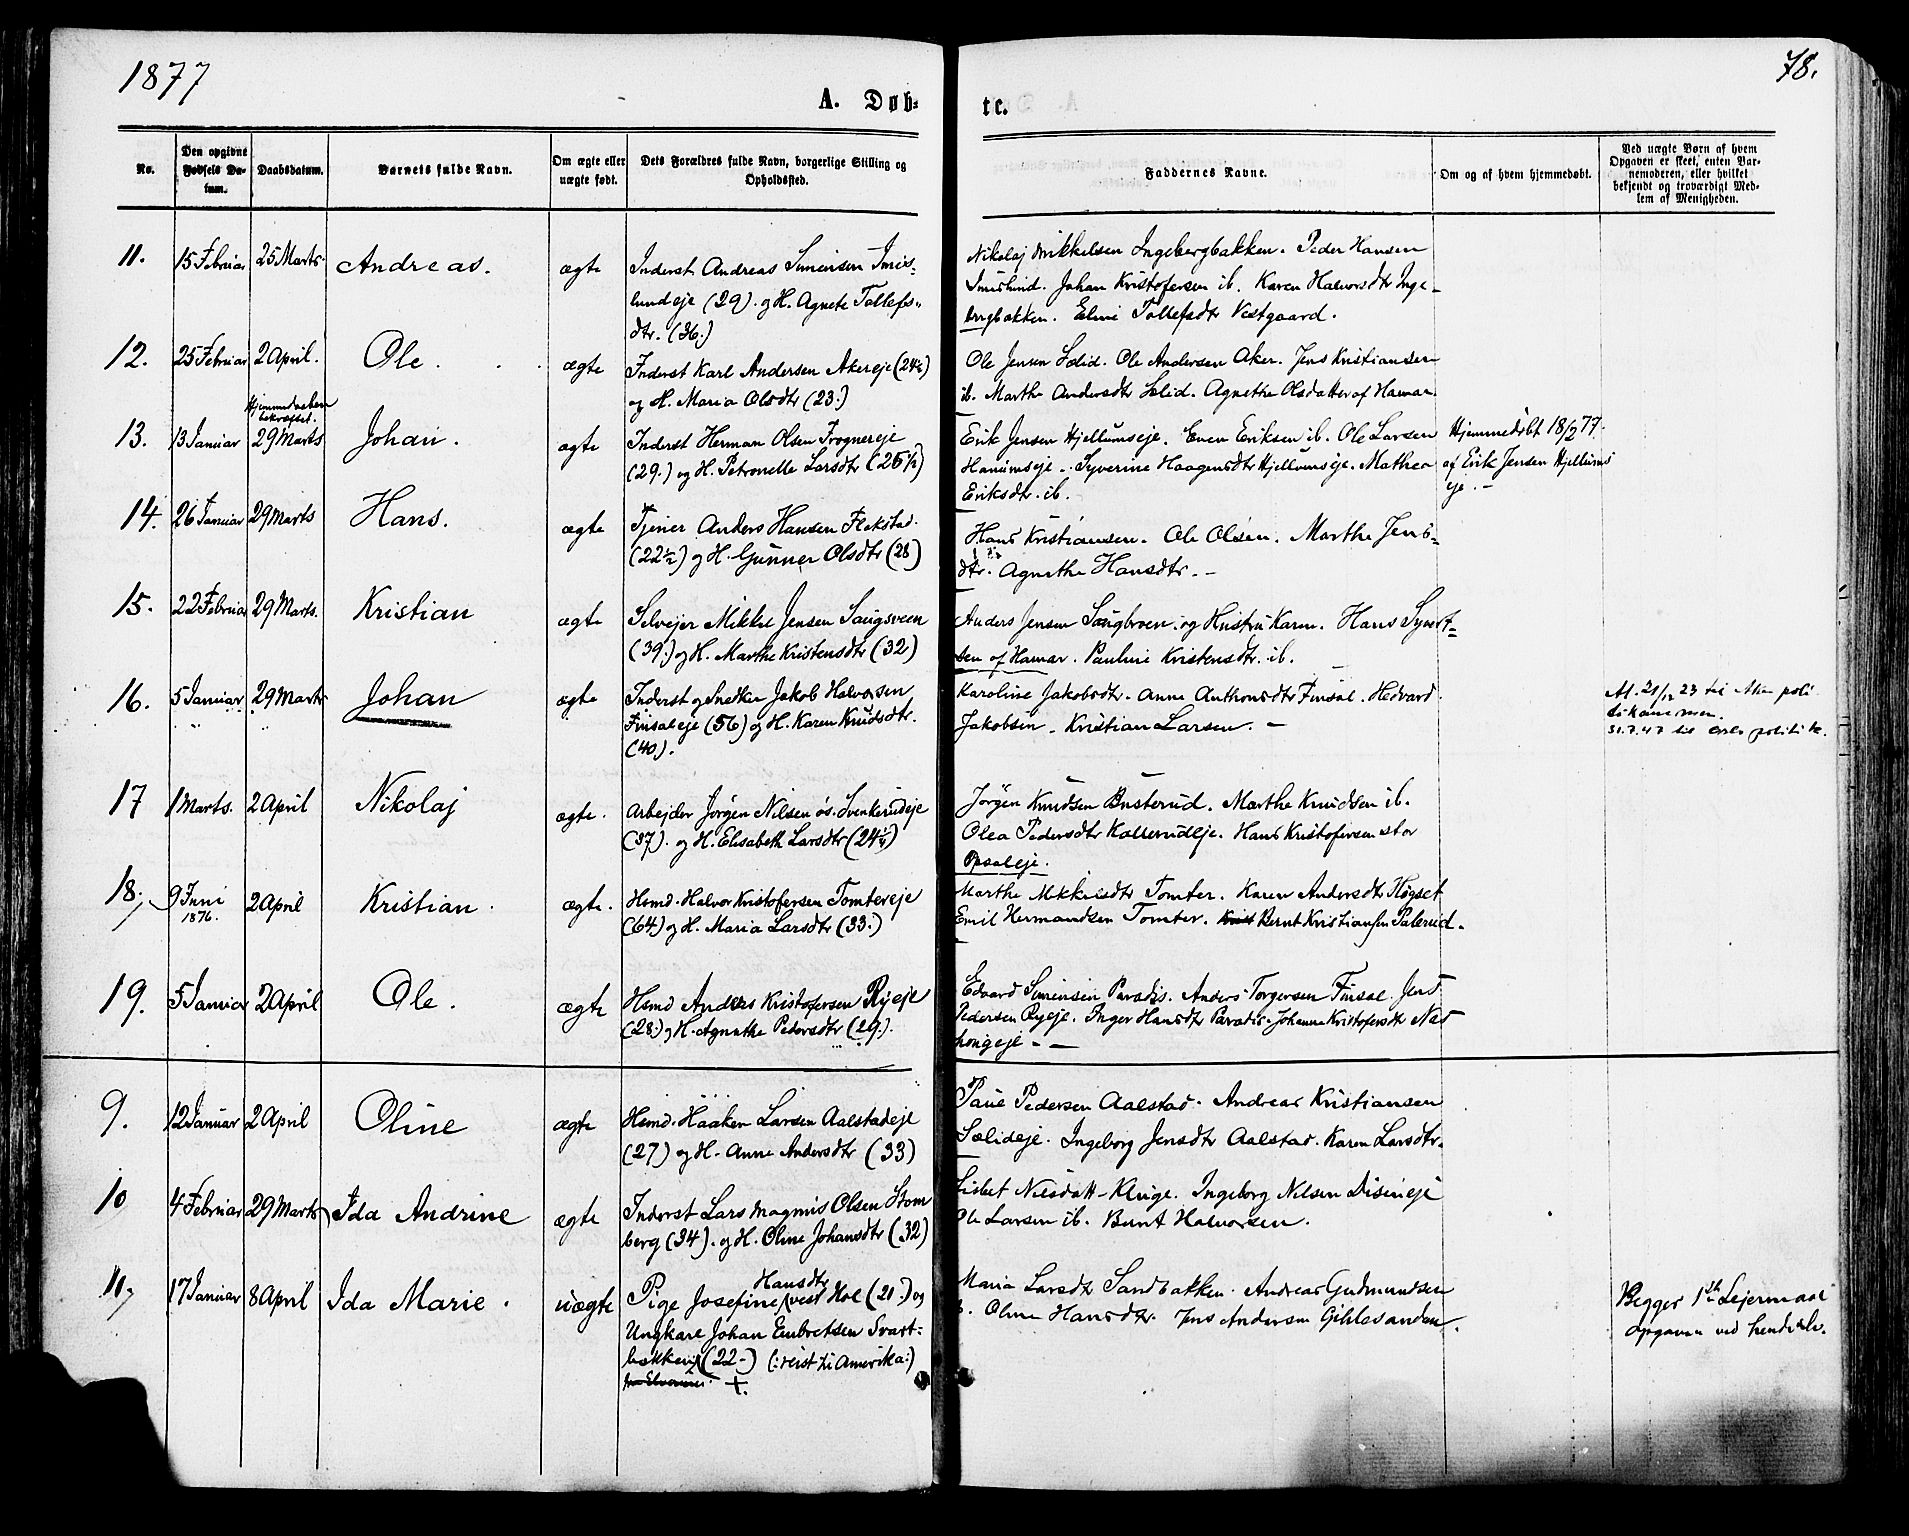 1877
78.
A. Døb-
te.
No.
Den opgivne
Fødsels Da-
tum.
Daabsdatum.
Barnets fulde Navn.
Om ægte eller
uægte født.
Dets Forældres fulde Navn, borgerlige Stilling og
Opholdssted.
Faddernes Navne.
Om og af hvem hjemmedøbt.
Ved uægte Børn af hvem
Opgaven er skeet, enten Bar-
nemoderen, eller hvilket
bekjendt og troværdigt Med-
lem af Menigheden.
11. 15 Februar 25 Marts. Andreas. ægte
Inderst Andreas Simensen Imis-
lundeje (29). og H. Agnete Tollefs-
dtr. (36.)
Nikolaj Mikkelsen Ingebergbakken. Peder Hansen
Imislund. Johan Kristofersen ib. Karen Halvorsdtr Inge-
bergbakken. Eline Tollefsdtr Vestgaard.
12. 25 Februar 2 April. Ole. ægte
Inderst Karl Andersen Akereje (24½)
og H. Maria Olsdtr (23.)
Ole Jensen Sælid. Ole Andersen Aker. Jens Kristiansen
ib. Marthe Andersdtr Sælid. Agnethe Olsdatter af Hamar.
Hjemmedaaben
bekræftet.
13. 13 Januar 29 Marts Johan. ægte
Inderst Herman Olsen Frognereje
(29.) og H. Petronelle Larsdtr (25½)
Erik Jensen Hjellumseje. Even Eriksen ib. Ole Larsen
Hanumseje. Syverine Haagensdtr Hjellumseje. Mathea
Eriksdtr. ib.
Hjemmedøbt 18/2 77.
af Erik Jensen Hjellums
eje.-
14. 26 Januar 29 Marts Hans. ægte
Tjener Anders Hansen Flakstad.
(22½) og H. Gunner Olsdtr (28)
Hans Kristiansen. Ole Olsen. Marthe Jens-
dtr. Agnethe Hansdtr.-
15. 22 Februar 29 Marts. Kristian ægte
Selvejer Mikkel Jensen Saugsveen
(39.) og H. Marthe Kristensdtr (32)
Anders Jensen Saugbroen. og Hustru Karen. Hans Syvert-
sen af Hamar. Pauline Kristensdtr. ib.
16. 5 Januar 29 Marts Johan ægte
Inderst og Snedker Jakob Halvorsen
Finsaleje (56) og H. Karen Knudsdtr.
(40).
Karoline Jakobsdtr. Anne Anthonsdtr Finsal. Hedvard
Jakobsen. Kristian Larsen.-
At. 21/12 23 til Aker poli
tikammer.
31.7.47 til Oslo politik.
17 1 Marts. 2 April Nikolaj ægte.
Arbejder Jørgen Nilsen øs. Svenkerudeje
(37). og H. Elisabeth Larsdtr (24¼)
Jørgen Knudsen Busterud. Marthe Knudsen ib.
Olea Pedersdtr Kallerudeje. Hans Kristofersen stor
Opsaleje.
18. 9 Juni 2 April Kristian. ægte.
1876.
Hsmd. Halvor Kristofersen Tomtereje
(64) og H. Maria Larsdtr (33.)
Marthe Mikkelsdtr Tomter. Karen Andersdtr Høgset
Emil Hermandsen Tomter. Bernt Kristiansen Palerud.
19. 5 Januar 2 April Ole. ægte
Hsmd Anders Kristofersen Ryeje
(28.) og H. Agnethe Pedersdtr (29.).
Edvard Simensen Paradis. Anders Torgersen Finsal. Jens
Pedersen Ryeje. Inger Hansdtr Paradis. Johanne Kristofersdtr Næs
hongeje.-
9. 12 Januar 2 April Oline ægte
Hsmd. Haaken Larsen Aalstadeje
(27) og H. Anne Andersdtr (33)
Paul Pedersen Aalstad. Andreas Kristiansen
Sælideje. Ingeborg Jensdtr Aalstad. Karen Larsdtr.
10 4 Februar 29 Marts Ida Andrine ægte
Inderst Lars Magnus Olsen Stom
berg (34). og H. Oline Johansdtr (32)
Lisbet Nilsdatt- Kluge. Ingeborg Nilsen Disineje
Ole Larsen ib. Bernt Halvorsen.
11. 17 Januar 8 April Ida Marie. uægte
Hansdtr
Pige Josefine vest Hol (21.) og
Ungkarl Johan Embretsen Svart-
bakken (22-) (: reist til Amerika:)
Maria Larsdt Sandbakken. Andreas Gudmundsen
Oline Hansdtr. Jens Andersen Gihlesanden.
Begges 1ste Lejermaal
Opgaven ved hendselv.